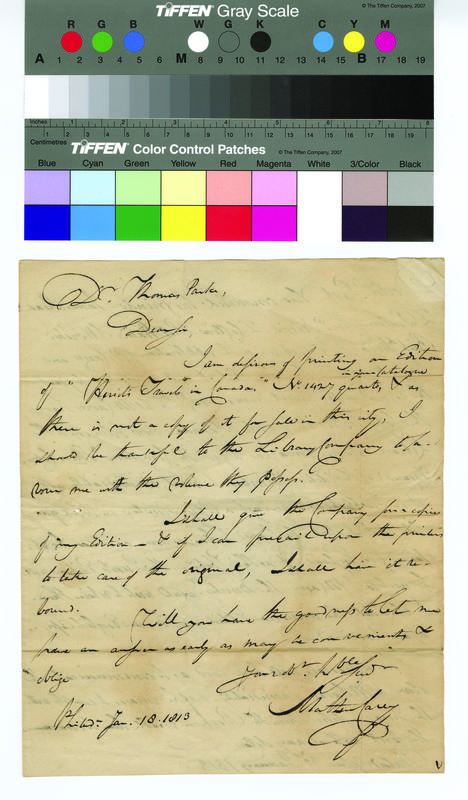 TIFFEN® Gray Scale
© The Tiffen Company, 2007
R G B W G K C Y M
A 1 2 3 4 5 6 M 8 9 10 11 12 13 14 15 B 17 18 19
Inches 1 2 3 4 5 6 7 8
Centimetres 1 2 3 4 5 6 7 8 9 10 11 12 13 14 15 16 17 18 19
TIFFEN® Color Control Patches
© The Tiffen Company, 2007
Blue Cyan Green Yellow Red Magenta White 3/Color Black
Dr. Thomas Parke,
Dear Sir,
I am desirous of printing an Edition
in your Catalogue
of "Heriot's Travels in Canada" No. 1427 quarto, & as
there is not a copy of it for sale in this city, I
should be thankful to the Library Company to fa-
vour me with the volume they possess.
I shall give the Company four copies
of my Edition — & if I can prevail upon the printers
to take care of the original, I shall have it re-
bound.
Will you have the goodness to let me
have an answer as early as may be convenient, &
oblige
Your obt. hble servt
Mathew Carey
Philada. Jan. 18. 1813